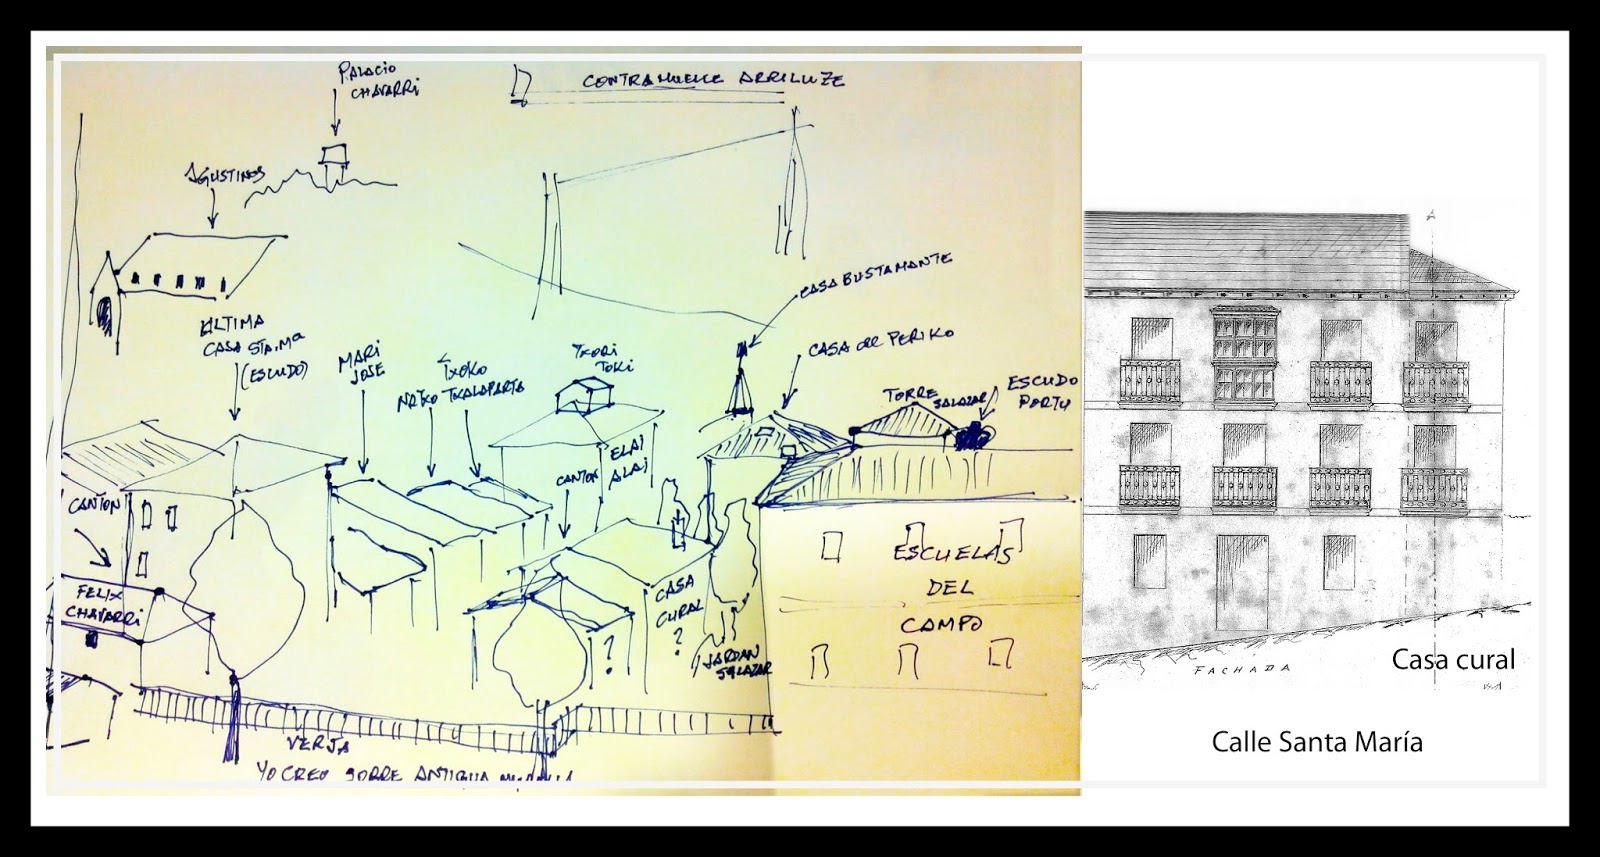 PALACIO
CHAVARRI
CONTRAMUELLE ARRILUZE
AGUSTINOS
CASA BUSTAMANTE
ULTIMA
CASA STA. Mª
(ESCUDO)
MARI
JOSE
TXOKO
TXALAPARTA
TXORI
TOKI
CASA del PERIKO
TORRE
SALAZAR
ESCUDO
PORTU
ELAI
ALAI
CANTON
CANTON
FELIX
CHAVARRI
CASA
CURAL
?
?
JARDAN
SALAZAR
ESCUELAS
DEL
CAMPO
VERJA
YO CREO SOBRE ANTIGUA
A
FACHADA
Casa cural
Calle Santa María